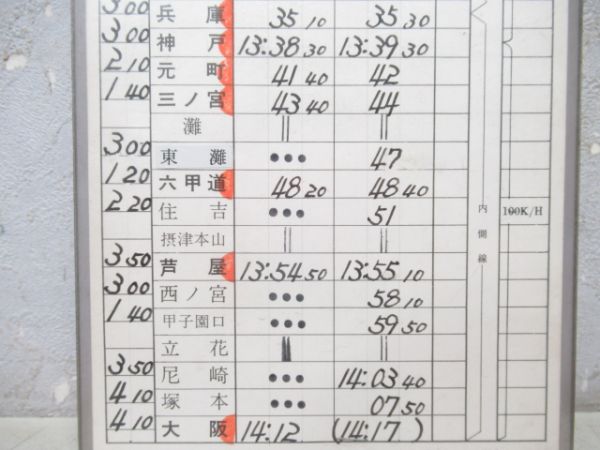 3 00 兵庫 35 10 35 30
3 00 神戸 13:38 30 13:39 30
2 10 元町 41 40 42
1 40 三ノ宮 43 40 44
灘 || ||
3 00 東灘 ••• 47
1 20 六甲道 48 20 48 40
2 20 住吉 ••• 51 内側線 100K/H
摂津本山 || ||
3 50 芦屋 13:54 50 13:55 10
3 00 西ノ宮 ••• 58 10
1 40 甲子園口 ••• 59 50
立花 || ||
3 50 尼崎 ••• 14:03 40
4 10 塚本 ••• 07 50
4 10 大阪 14:12 (14:17)